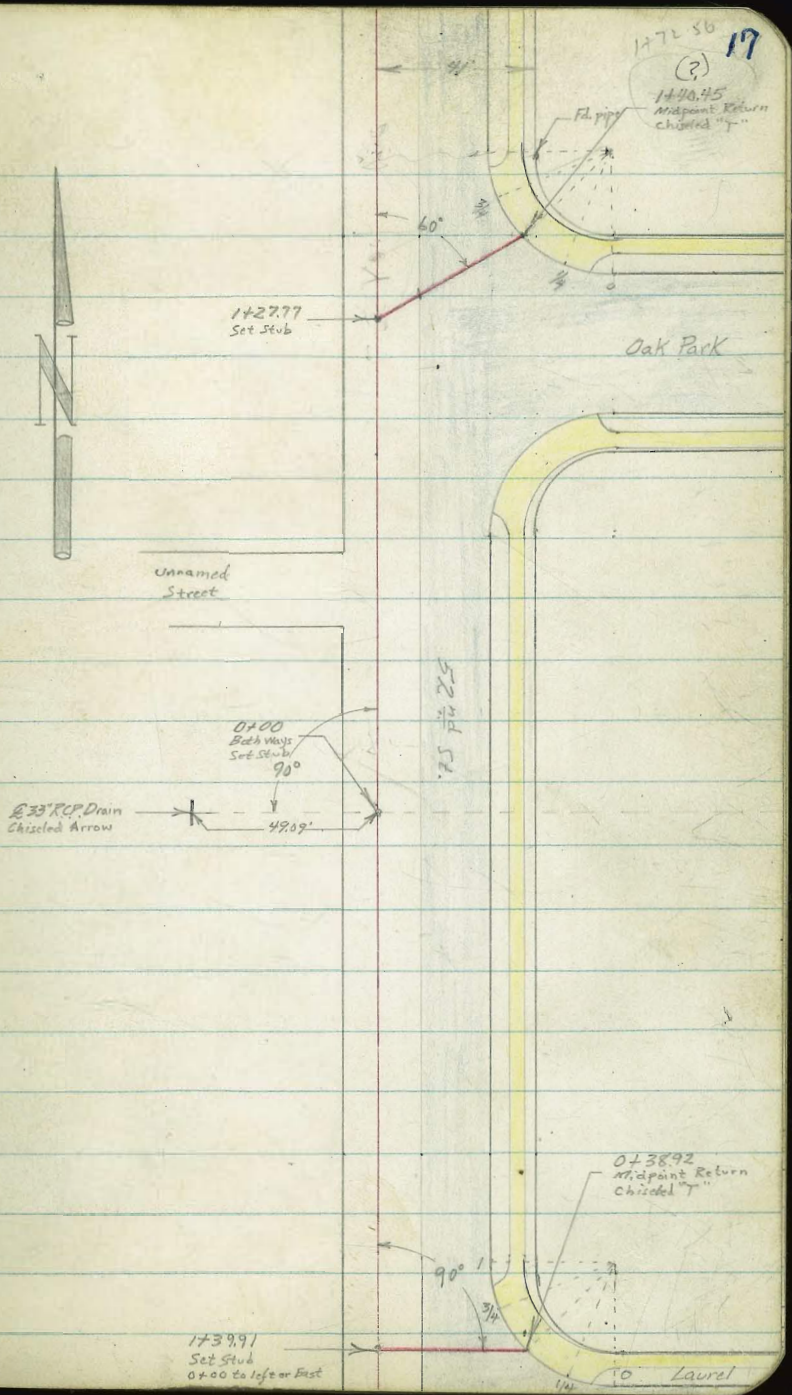 1+72.56
17
(?)
41'
1+40.45
Midpoint Return
Chiseled "T"
Fd. pipe
60°
1+27.77
Set Stub
Oak Park
N
Unnamed
Street
52nd St.
0+00
Both Ways
Set Stub
90°
℄ 33" RCP Drain
Chiseled Arrow
49.09'
0+38.92
Midpoint Return
Chiseled "T"
90°
1
3/4
1+39.91
Set Stub
0+00 to left or East
1/4
0
Laurel